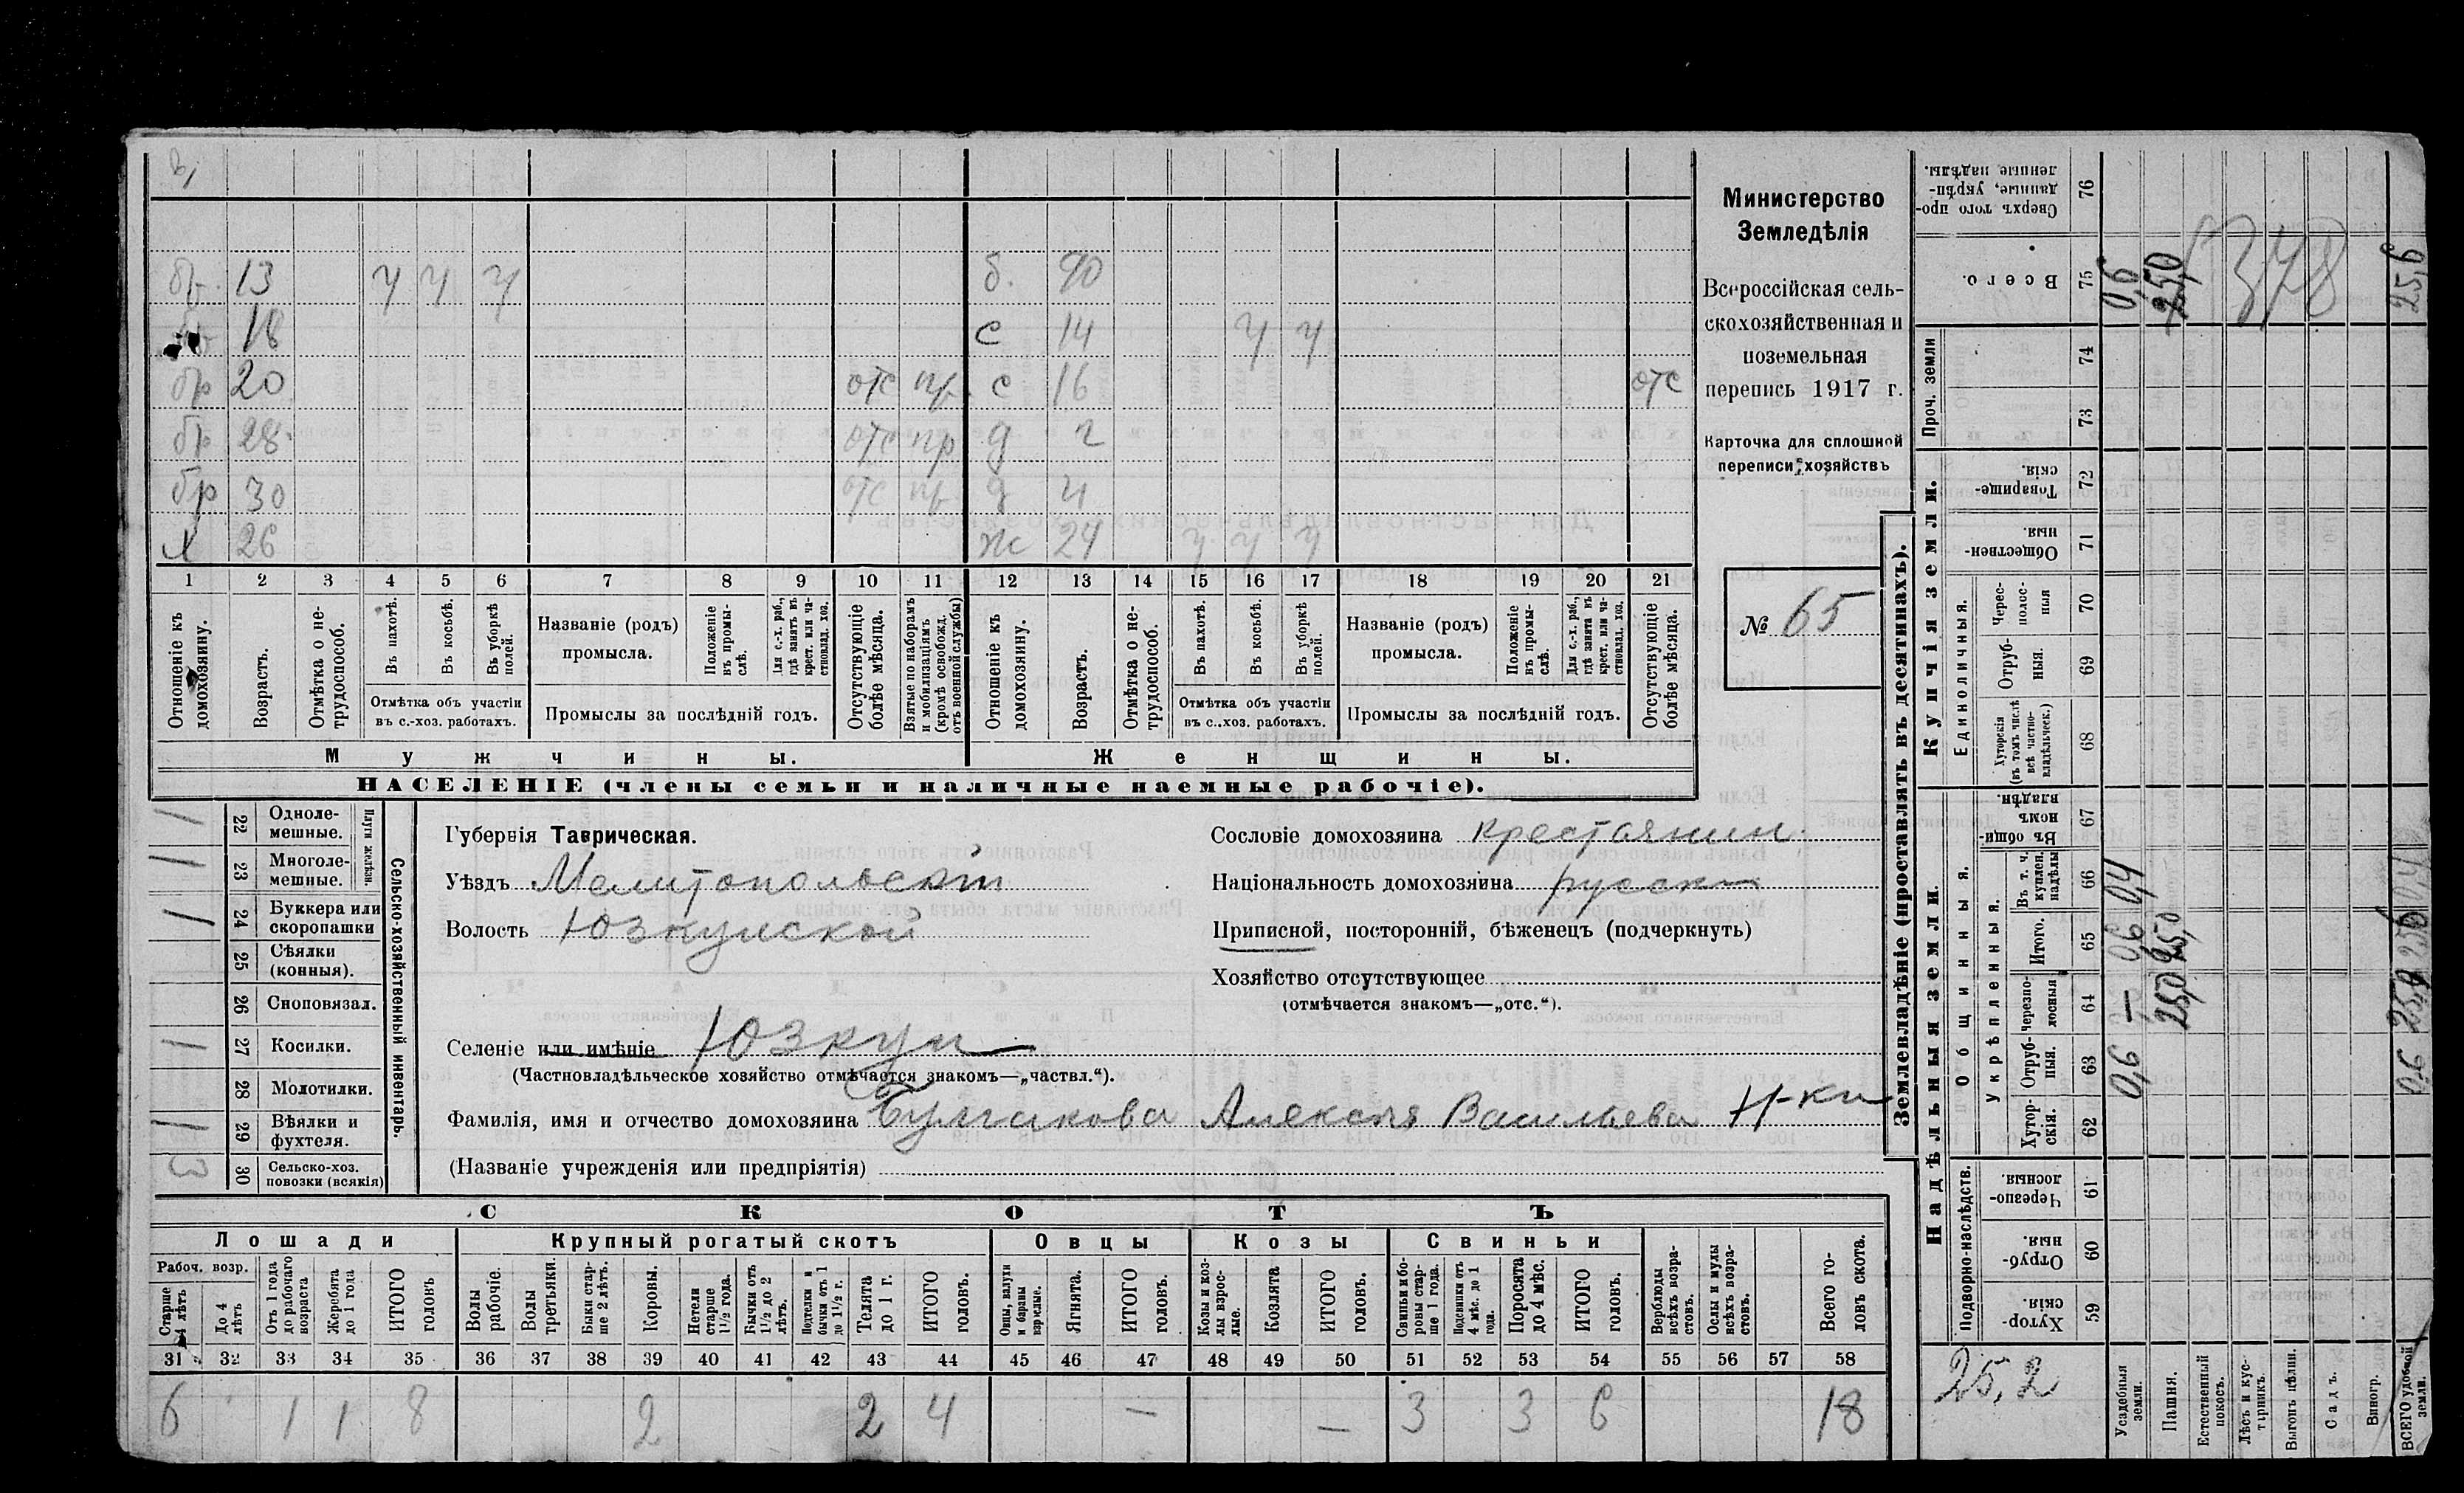 бр. 13 ч ч ч б. 90
18 с 14 ч ч
бр 20 отс пр. с 16 отс
бр 28 отс пр д 2
бр 30 отс пр. д 4
х 26 ж 24 ч ч ч
1 2 3 4 5 6 7 8 9 10 11 12 13 14 15 16 17 18 19 20 21
Отношеніе къ домохозяину.
Возрастъ.
Отмѣтка о не-
трудоспособ.
Въ пахотѣ.
Въ косьбѣ.
Въ уборкѣ
полей.
Отмѣтка объ участіи
въ с.-хоз. работахъ.
Названіе (родъ)
промысла.
Положеніе
въ промы-
слѣ.
Для с.-х. раб.,
гдѣ занятъ въ
крест. или ча-
стновлад. хоз.
Промыслы за послѣдній годъ.
Отсутствующіе
болѣе мѣсяца.
Взятые по наборамъ
и мобилизаціямъ
(кромѣ освобожд.
отъ военной службы)
Отношеніе къ
домохозяину.
Возрастъ.
Отмѣтка о не-
трудоспособ.
Въ пахотѣ.
Въ косьбѣ.
Въ уборкѣ
полей.
Отмѣтка объ участіи
въ с.-хоз. работахъ.
Названіе (родъ)
промысла.
Положеніе
въ промы-
слѣ.
Для с.-х. раб.,
гдѣ занята въ
крест. или ча-
стновлад. хоз.
Промыслы за послѣдній годъ.
Отсутствующіе
болѣе мѣсяца.
Мужчины.
Женщины.
НАСЕЛЕНІЕ (члены семьи и наличные наемные рабочіе).
Министерство
Земледѣлія
Всероссійская сель-
скохозяйственная и
поземельная
перепись 1917 г.
Карточка для сплошной
переписи хозяйствъ
№ 65
Сельско-хозяйственный инвентарь.
Плуги желѣзн.
1 22 Одноле-
мешные.
1 23 Многоле-
мешные.
1 24 Буккера или
скоропашки
25 Сѣялки
(конныя).
26 Сноповязал.
1 27 Косилки.
28 Молотилки.
1 29 Вѣялки и
фухтеля.
3 30 Сельско-хоз.
повозки (всякія)
Губернія Таврическая.
Уѣздъ Мелитопольскій
Волость Юзкуйской
Селеніе или имѣніе Юзкуи
(Частновладѣльческое хозяйство отмѣчается знакомъ—„частвл.“).
Фамилія, имя и отчество домохозяина Булгакова Алексѣя Васильева Н-ки
(Названіе учрежденія или предпріятія)
Сословіе домохозяина крестьянин.
Національность домохозяина русски
Приписной, посторонній, бѣженецъ (подчеркнуть)
Хозяйство отсутствующее
(отмѣчается знакомъ—„отс.“).
СКОТЪ
Лошади
Крупный рогатый скотъ
Овцы
Козы
Свиньи
Рабоч. возр.
Старше
4 лѣтъ
До 4
лѣтъ
Отъ 1 года
до рабочаго
возраста
Жеребята
до 1 года
ИТОГО
головъ
Волы
рабочіе.
Волы
третьяки.
Быки стар-
ше 2 лѣтъ.
Коровы.
Нетели
старше
1½ года.
Бычки отъ
1½ до 2
лѣтъ.
Подтелки и
бычки отъ 1
до 1½ г.
Телята
до 1 г.
ИТОГО
головъ.
Овцы, валухи
и бараны
взрослые.
Ягнята.
ИТОГО
головъ.
Козы и коз-
лы взрос-
лые.
Козлята
ИТОГО
головъ.
Свиньи и бо-
ровы стар-
ше 1 года.
Подсвинки отъ
4 мѣс. до 1
года.
Поросята
до 4 мѣс.
ИТОГО
головъ.
Верблюды
всѣхъ возра-
стовъ.
Ослы и мулы
всѣхъ возра-
стовъ.
Всего го-
ловъ скота.
31 32 33 34 35 36 37 38 39 40 41 42 43 44 45 46 47 48 49 50 51 52 53 54 55 56 57 58
6 1 1 8 2 2 4 — — 3 3 6 18
Землевладѣніе (проставлять въ десятинахъ).
Купчія земли.
Надѣльныя земли.
Проч. земли
Сверхъ того про-
данные, укрѣп-
ленные надѣлы.
76
Всего.
75
74
73
Товарище-
скія.
72
Обществен-
ныя.
71
Единоличныя.
Черес-
полос-
ныя
70
Отруб-
ныя.
69
Хуторскія
(въ томъ числѣ
всѣ частно-
владѣльческ.)
68
Общинныя.
Укрѣпленныя.
Въ общи-
номъ
владѣн.
67
Въ т. ч.
куплен.
надѣлы
66
Итого.
65
Черезпо-
лосныя
64
Отруб-
ныя.
63
Хутор-
скія.
62
Подворно-наслѣдств.
Черезпо-
лосныя.
61
Отруб-
ныя.
60
Хутор-
скія.
59
25,2
Усадебныя
земли.
0,6 — 0,6 0,4 0,6
Пашня.
25,0 25,0 25,0
Естественный
покосъ.
Лѣсъ и кус-
тарникъ.
Выгонъ цѣлин.
Садъ.
Виногр.
ВСЕГО удобной
земли.
0,6 25,0 25,6 0,4 25,6